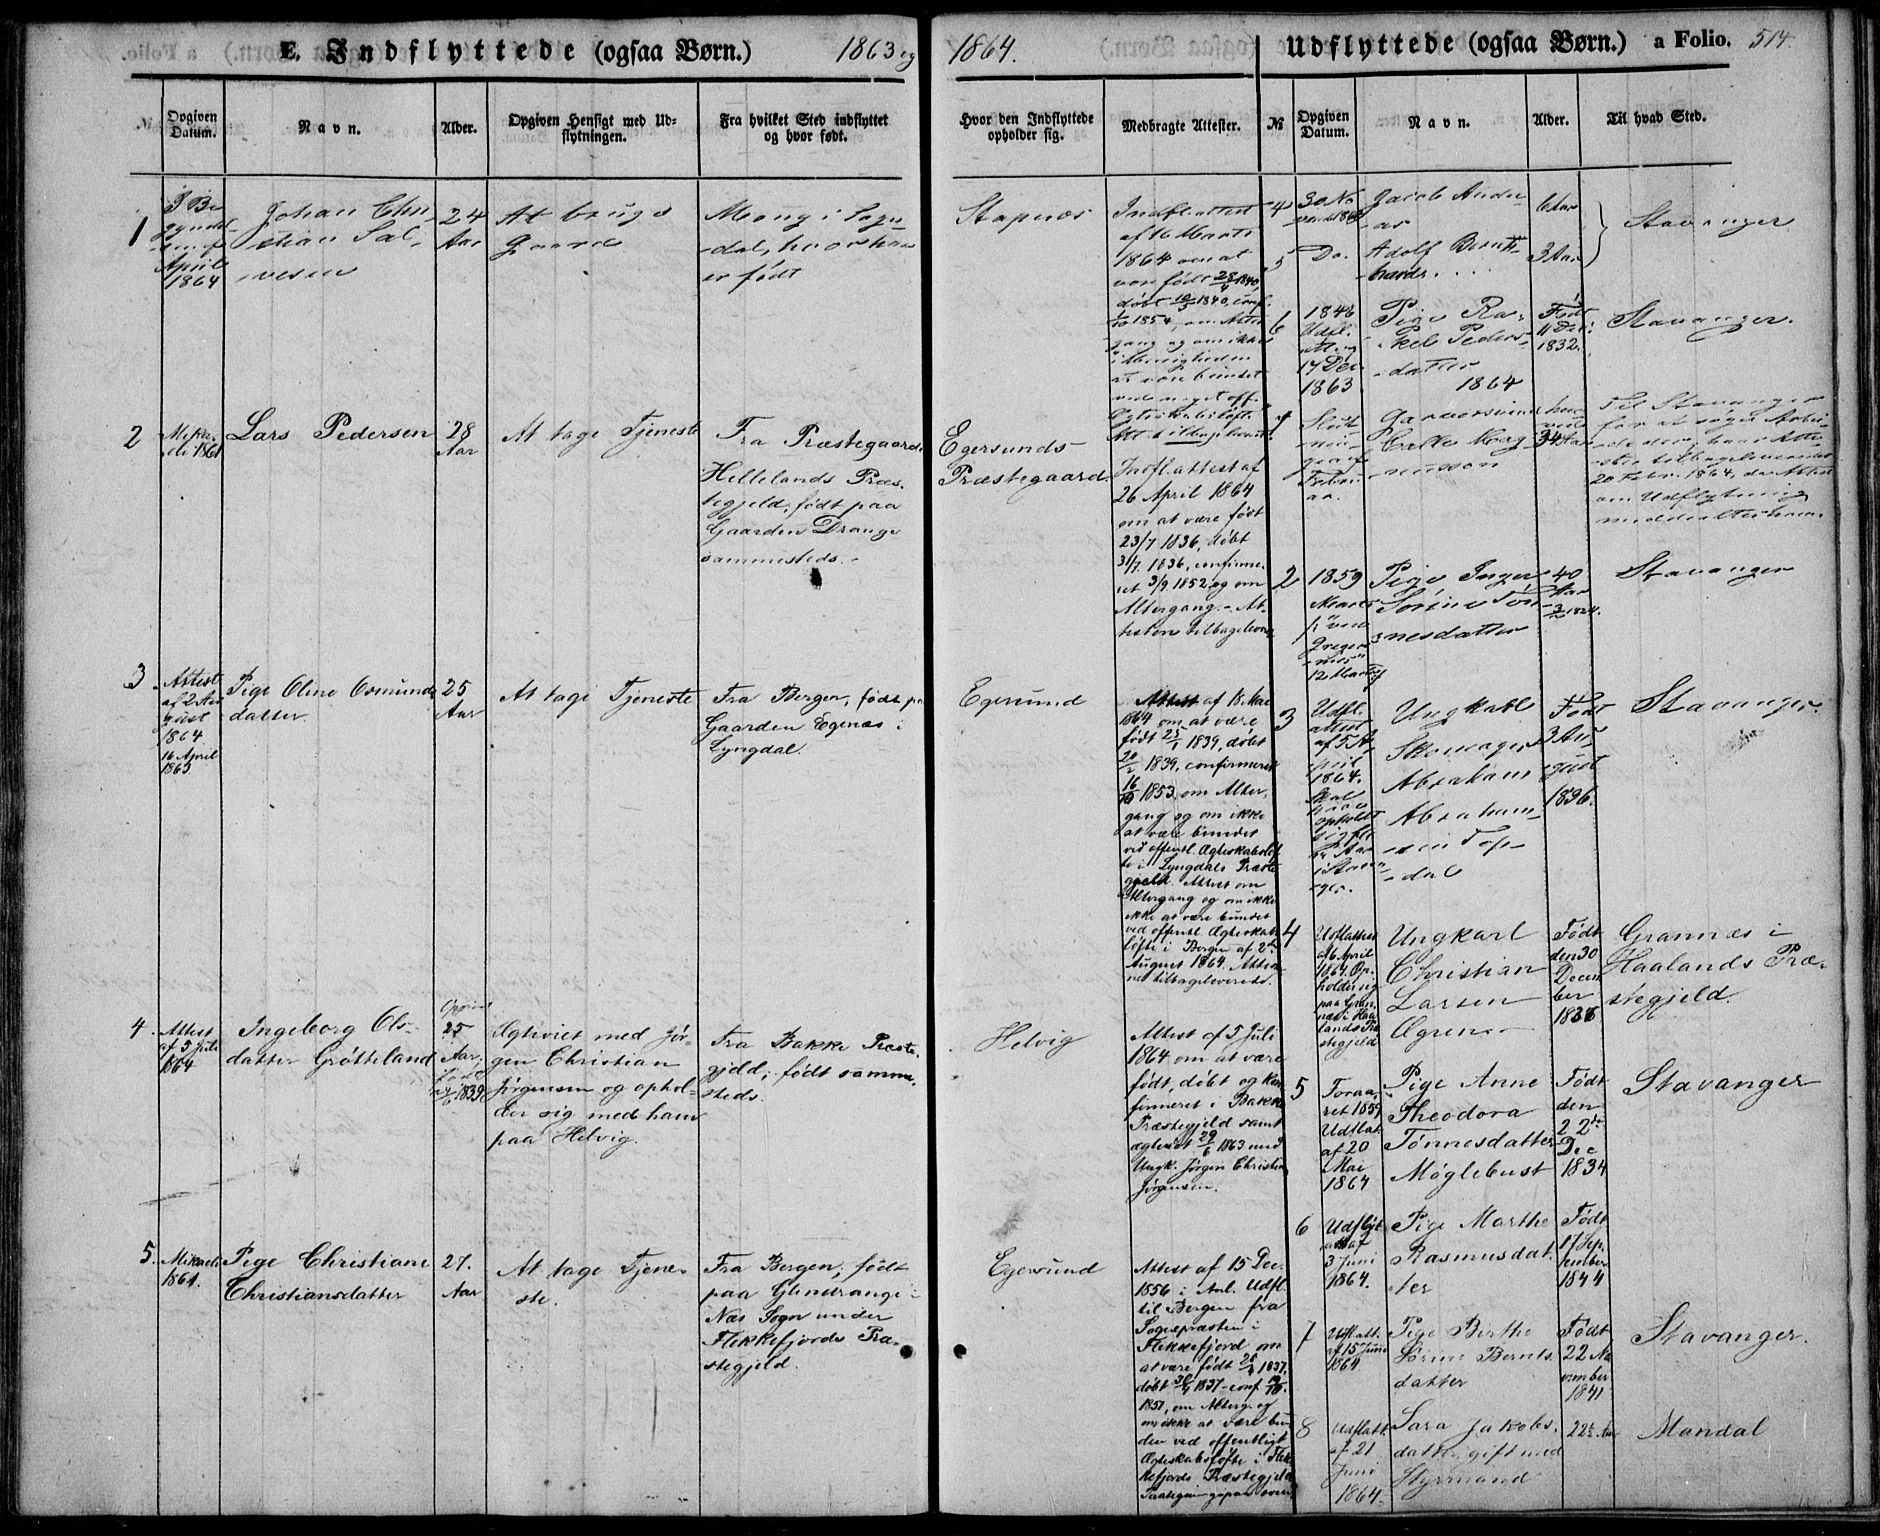 E. Indflyttede (ogsaa Børn.) 1863 og 1864. Udflyttede (ogsaa Børn.) a Folio. 514.
Opgiven Datum.
Navn.
Alder.
Opgiven Hensigt med Ud-
flytningen.
Fra hvilket Sted indflyttet
og hvor født.
Hvor den Indflyttede
opholder sig.
Medbragte Attester.
№
Opgiven Datum.
Navn.
Alder.
Til hvad Sted.
1
April
1864
Johan Chri-
stian Sal-
vesen
24
Aar
At bruge
Gaard
i Sogn-
dal, hvor han
er født
Stapnæs
Indflattest
af 16 Marts
1864 om at
være født 28/4 1840,
døbt 10/5 1840, conf.
1/10 1854, om Alter-
gang og om ikke
i Menigheden
at være bundet
ved noget off.
Ægteskabsløfte
2
1861
Lars Pedersen
28
Aar
At tage Tjeneste
Fra Præstegaard
Hellelands Præs-
tegjeld, født paa
Gaarden Drange
sammesteds.
Egersunds
Præstegaard.
Indflattest af
26 April 1864
om at være født
23/7 1836, døbt
31/7 1836, confirme-
ret 3/9 1852 og om
Altergang. - At-
testen tilbageleveret
3
Attest
af 2 Au-
gust
1864
16 April
1863
Pige Oline Osmunds-
datter
25
Aar
At tage Tjeneste
Fra Bergen, født paa
Gaarden Egenæs i
Lyngdal.
Egersund
Attest af 18 Mai
1864 om at være
født 25/1 1839, døbt
20/2 1839, confirmeret
16/10 1853, om Alter-
gang og om ikke
at være bundet
ved offentl. Ægteskabsløf-
te i Lyngdals Præste-
gjeld. Attest om
Altergang og om ikke
ikke at være bundet
ved offentl. Ægteskabs-
løfte i Bergen af 2den
August 1864. Attes-
ten tilbageleveredes.
4
Attest
af 5 Juli
1864
Ingeborg Ols-
datter Grøtteland
25
Aar
1839
Ægteviet med Jør-
gen Christian
Jørgensen og ophol-
der sig med ham
paa Helvig.
Fra Bakke Præste-
gjeld, født samme-
steds.
Helvig
Attest af 5 Juli
1864 om at være
født, døbt og kon-
firmeret i Bakke
Præstegjeld samt
ægteviet 29/6 1863 med
Ungk. Jørgen Christian
Jørgensen.
5.
Mikaeli
1861.
Pige Christiane
Christiansdatter
27.
Aar
At tage Tjene-
ste.
Fra Bergen, født
paa Glendrange i
Næs Sogn under
Flekkefjords Præ-
stegjeld.
Egersund
Attest af 15 Dec.
1856 i Anl. Udfl.
til Bergen fra
Sognepræsten i
Flekkefjord om
at være født 1837,
døbt 1837 - conf.
1851, om Alterg. og
om ikke at være bun-
den ved offentligt
Ægteskabsløfte i Flek-
kefjords Præstegjeld
4
30 No-
Jacob Andre-
as
6 Aar
Stavanger
5
Do.
Adolf Bernt-
3 Aar
6
1846
Udfl.
att. af
17 Dec
1863
Pige Ra-
kel Peders-
datter
Født
11 Dec
1832.
Stavanger.
1864
Februa-
34 Aar
Til Stavanger
for at søge Arbei-
20 Febr. 1864, da Attest
om Udflytning
2
1859
Marts
12 Marts
Pige Inger
Sørine Tøn-
nesdatter
40
Aar
1824.
Stavanger
3
Udfl.
attest
af 5 A-
pril
1864.
Skal
opholdt
Ungkarl
Skomager
Abraham
Abraham-
sen Top-
dal
Født
3 Au-
gust
1836.
Stavanger.
4
Udflattest
af 6 April
1864. Op-
holder sig
paa Gran-
næs i Haa-
lands Præ-
stegjeld
Ungkarl
Christian
Larsen
Ægrene
Født
den 30
Decem-
ber
1836
Grannæs i
Haalands Præ-
stegjeld.
5
Foraa-
ret 1859
Udflat.
af 20
Mai
1864
Pige Anne
Theodora
Tønnesdatter
Møglebust
Født
den
22de
Dec
1834
Stavanger
6
Udflyt.
att. af
3 Juni
1864.
Pige Marthe
Rasmusdat-
ter
Født
17 Sep-
tember
1844
7
Udflatt.
af 15 Juni
1864
Pige Birthe
Sørine Bernts-
datter
Født
22 No-
vember
1841
Stavanger.
8
Udflatt.
af 21
Juni
1864.
Sara Jakobs-
datter, gift med
Styrmand
22 Aar
Mandal